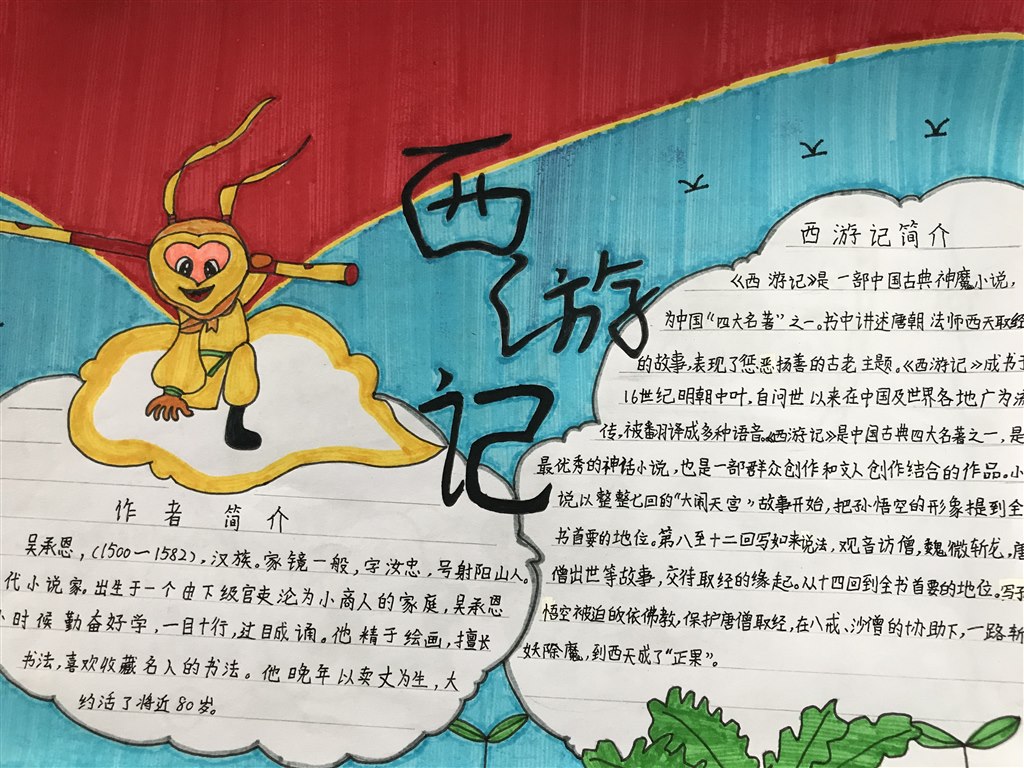 西游记
作者 简介
吴承恩，(1500一1582)，汉族。家镜一般，字汝忠，号射阳山人。
代小说家。出生于一个由下级官吏沦为小商人的家庭，吴承恩
小时候勤奋好学，一目十行，过目成诵。他精于绘画，擅长
书法，喜欢收藏名人的书法。他晚年以卖文为生，大
约活了将近80岁。
西游记简介
《西游记》是一部中国古典神魔小说，
为中国“四大名著”之一。书中讲述唐朝法师西天取经
的故事，表现了惩恶扬善的古老主题。《西游记》成书于
16世纪明朝中叶，自问世以来在中国及世界各地广为流
传，被翻译成多种语音。《西游记》是中国古典四大名著之一，是
最优秀的神话小说，也是一部群众创作和文人创作结合的作品。小
说以整整七回的“大闹天宫”故事开始，把孙悟空的形象提到全
书首要的地位。第八至十二回写如来说法，观音访僧，魏徵斩龙，唐
僧出世等故事，交待取经的缘起。从十四回到全书首要的地位。写孙
悟空被迫皈依佛教，保护唐僧取经，在八戒、沙僧的协助下，一路斩
妖除魔，到西天成了“正果”。